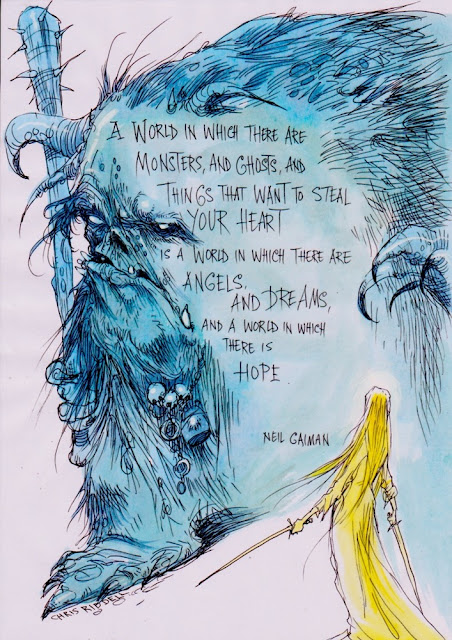 A WORLD IN WHICH THERE ARE
MONSTERS, AND GHOSTS, AND
THINGS THAT WANT TO STEAL
YOUR HEART
IS A WORLD IN WHICH THERE ARE
ANGELS,
AND DREAMS,
AND A WORLD IN WHICH
THERE IS
HOPE.
NEIL GAIMAN
CHRIS RIDDELL